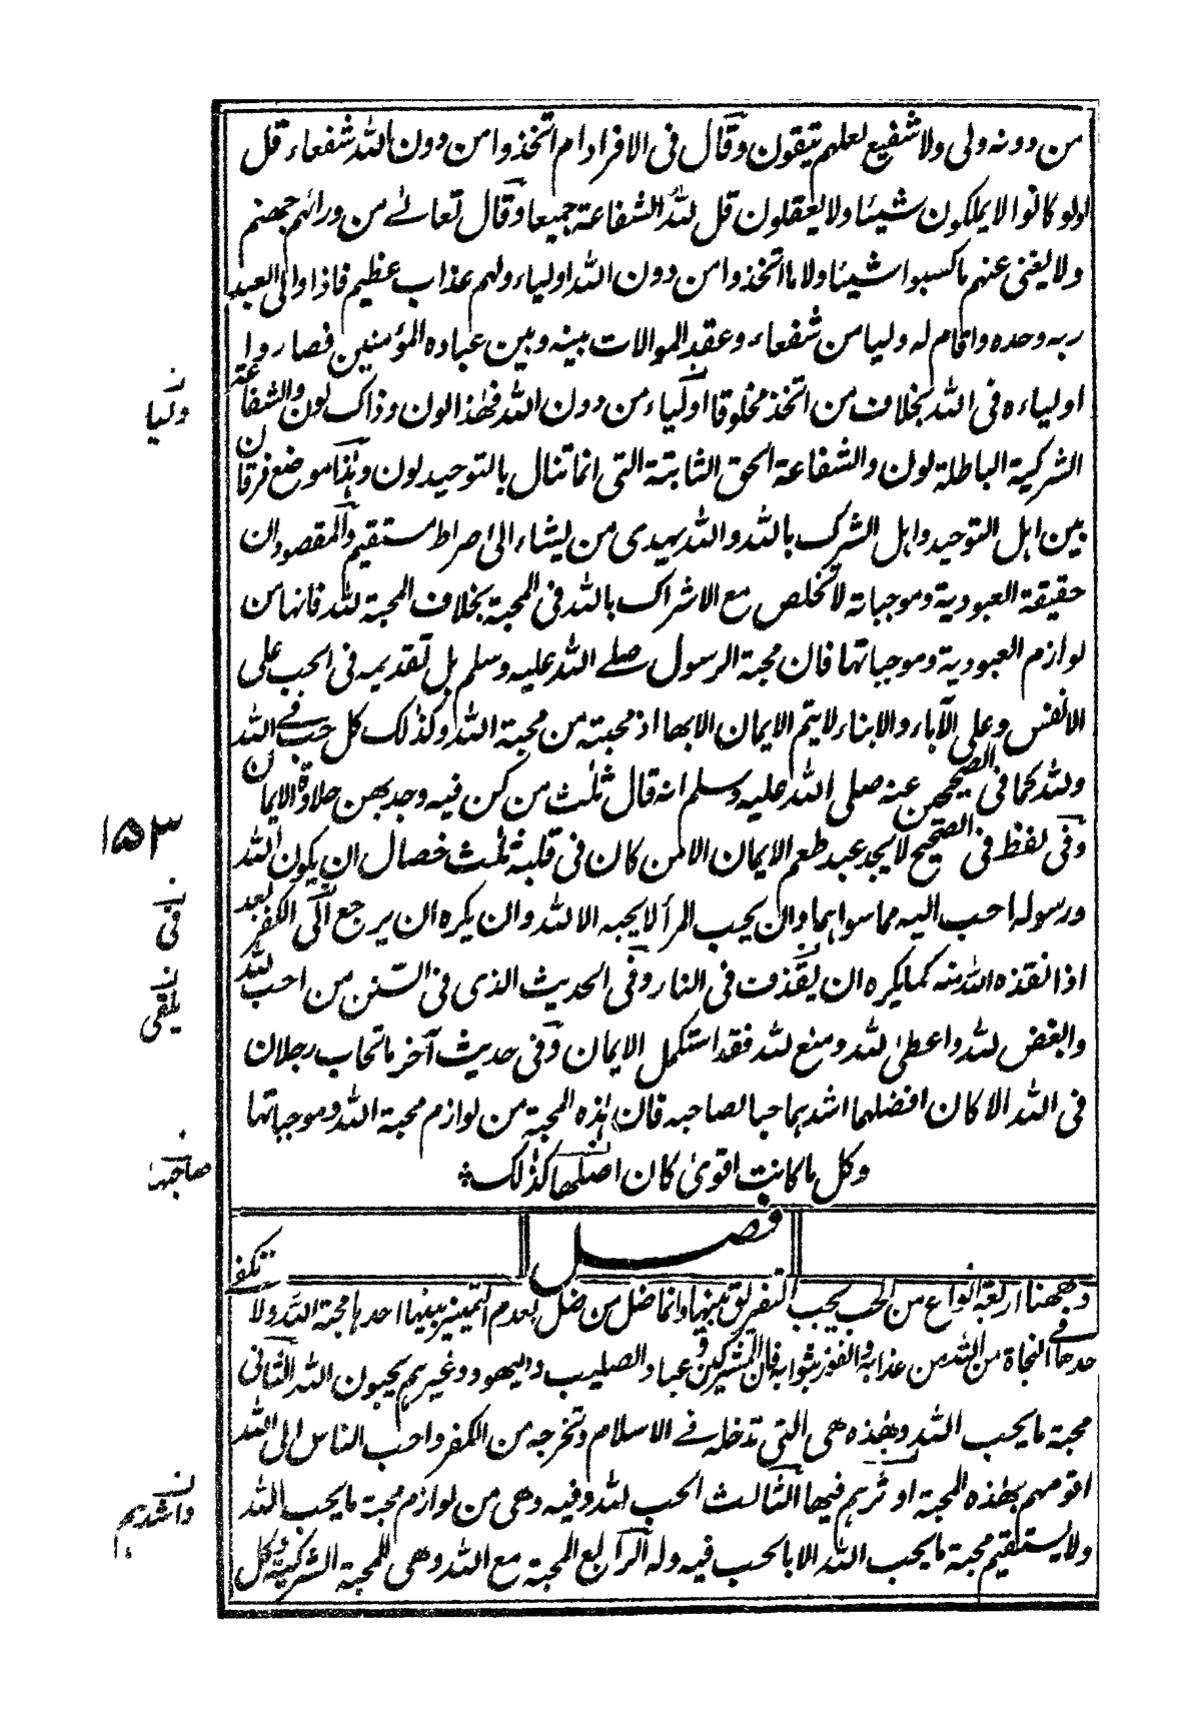 من دونه ولى ولا شفيع لعلهم يتقون وقال فى الافراد ام اتخذوا من دون الله شفعاء قل
اولو كانوا لا يملكون شيئا ولا يعقلون قل لله الشفاعة جميعا وقال تعالى من ورائهم جهنم
ولا يغنى عنهم ما كسبوا شيئا ولا ما اتخذوا من دون الله اولياء ولهم عذاب عظيم فاذا والى العبد
ربه وحده واقام له وليا من شفعاء وعقد الموالات بينه وبين عباده المؤمنين فصاروا
اولياءه فى الله بخلاف من اتخذ مخلوقا اولياء من دون الله فهذا لون وذاك لون والشفاعة
وليا
الشركية الباطلة لون والشفاعة الحق الثابتة التى انما تنال بالتوحيد لون وهذا موضع فرقان
بين اهل التوحيد واهل الشرك بالله والله يهدى من يشاء الى صراط مستقيم والمقصود ان
حقيقة العبودية وموجباته لا تخلص مع الاشراك بالله فى المحبة بخلاف المحبة لله فانها من
لوازم العبودية وموجباتها فان محبة الرسول صلے الله عليه وسلم بل تقديمه فى الحب على
الانفس وعلى الآباء والابناء لا يتم الايمان الا بها اذ محبته من محبة الله وكذلك كل حب فے الله
ولله كما فى الصحيحين عنه صلى الله عليه وسلم انه قال ثلث من كن فيه وجد بهن حلاوة الايمان
١٥٣
وفى لفظ فى الصحيح لا يجد عبد طعم الايمان الا من كان فى قلبه ثلث خصال ان يكون الله
ورسوله احب اليه مما سواهما وان يحب المرأ لا يحبه الا لله وان يكره ان يرجع الى الكفر بعد
فى
اذ انقذه الله منه كما يكره ان يقذف فى النار وفى الحديث الذى فى السنن من احب لله
يلقى
وابغض لله واعطى لله ومنع لله فقد استكمل الايمان وفى حديث آخر ما تحاب رجلان
فى الله الا كان افضلهما اشدهما حبا لصاحبه فان هذه المحبة من لوازم محبة الله وموجباتها
وكل ما كانت اقوى كان اصلها كذلك
صاحبها
فصل
وههنا اربعة انواع من الحب يجب التفريق بينها وانما ضل من ضل بعدم التمييز بينها احدها محبة الله ولا تكفے
وحدها فے النجاة من الله من عذابه والفوز بثوابه فان المشركين وعباد الصليب واليهود وغيرهم يحبون الله الثانى
محبة ما يحب الله وهذه هى التى تدخله فے الاسلام وتخرجه من الكفر واحب الناس الى الله
اقومهم بهذه المحبة او ثرهم فيها الثالث الحب لله وفيه وهى من لوازم محبة ما يحب الله
واشدهم
ولا يستقيم محبة ما يحب الله الا بالحب فيه وله الرابع المحبة مع الله وهى المحبة الشركية وكل